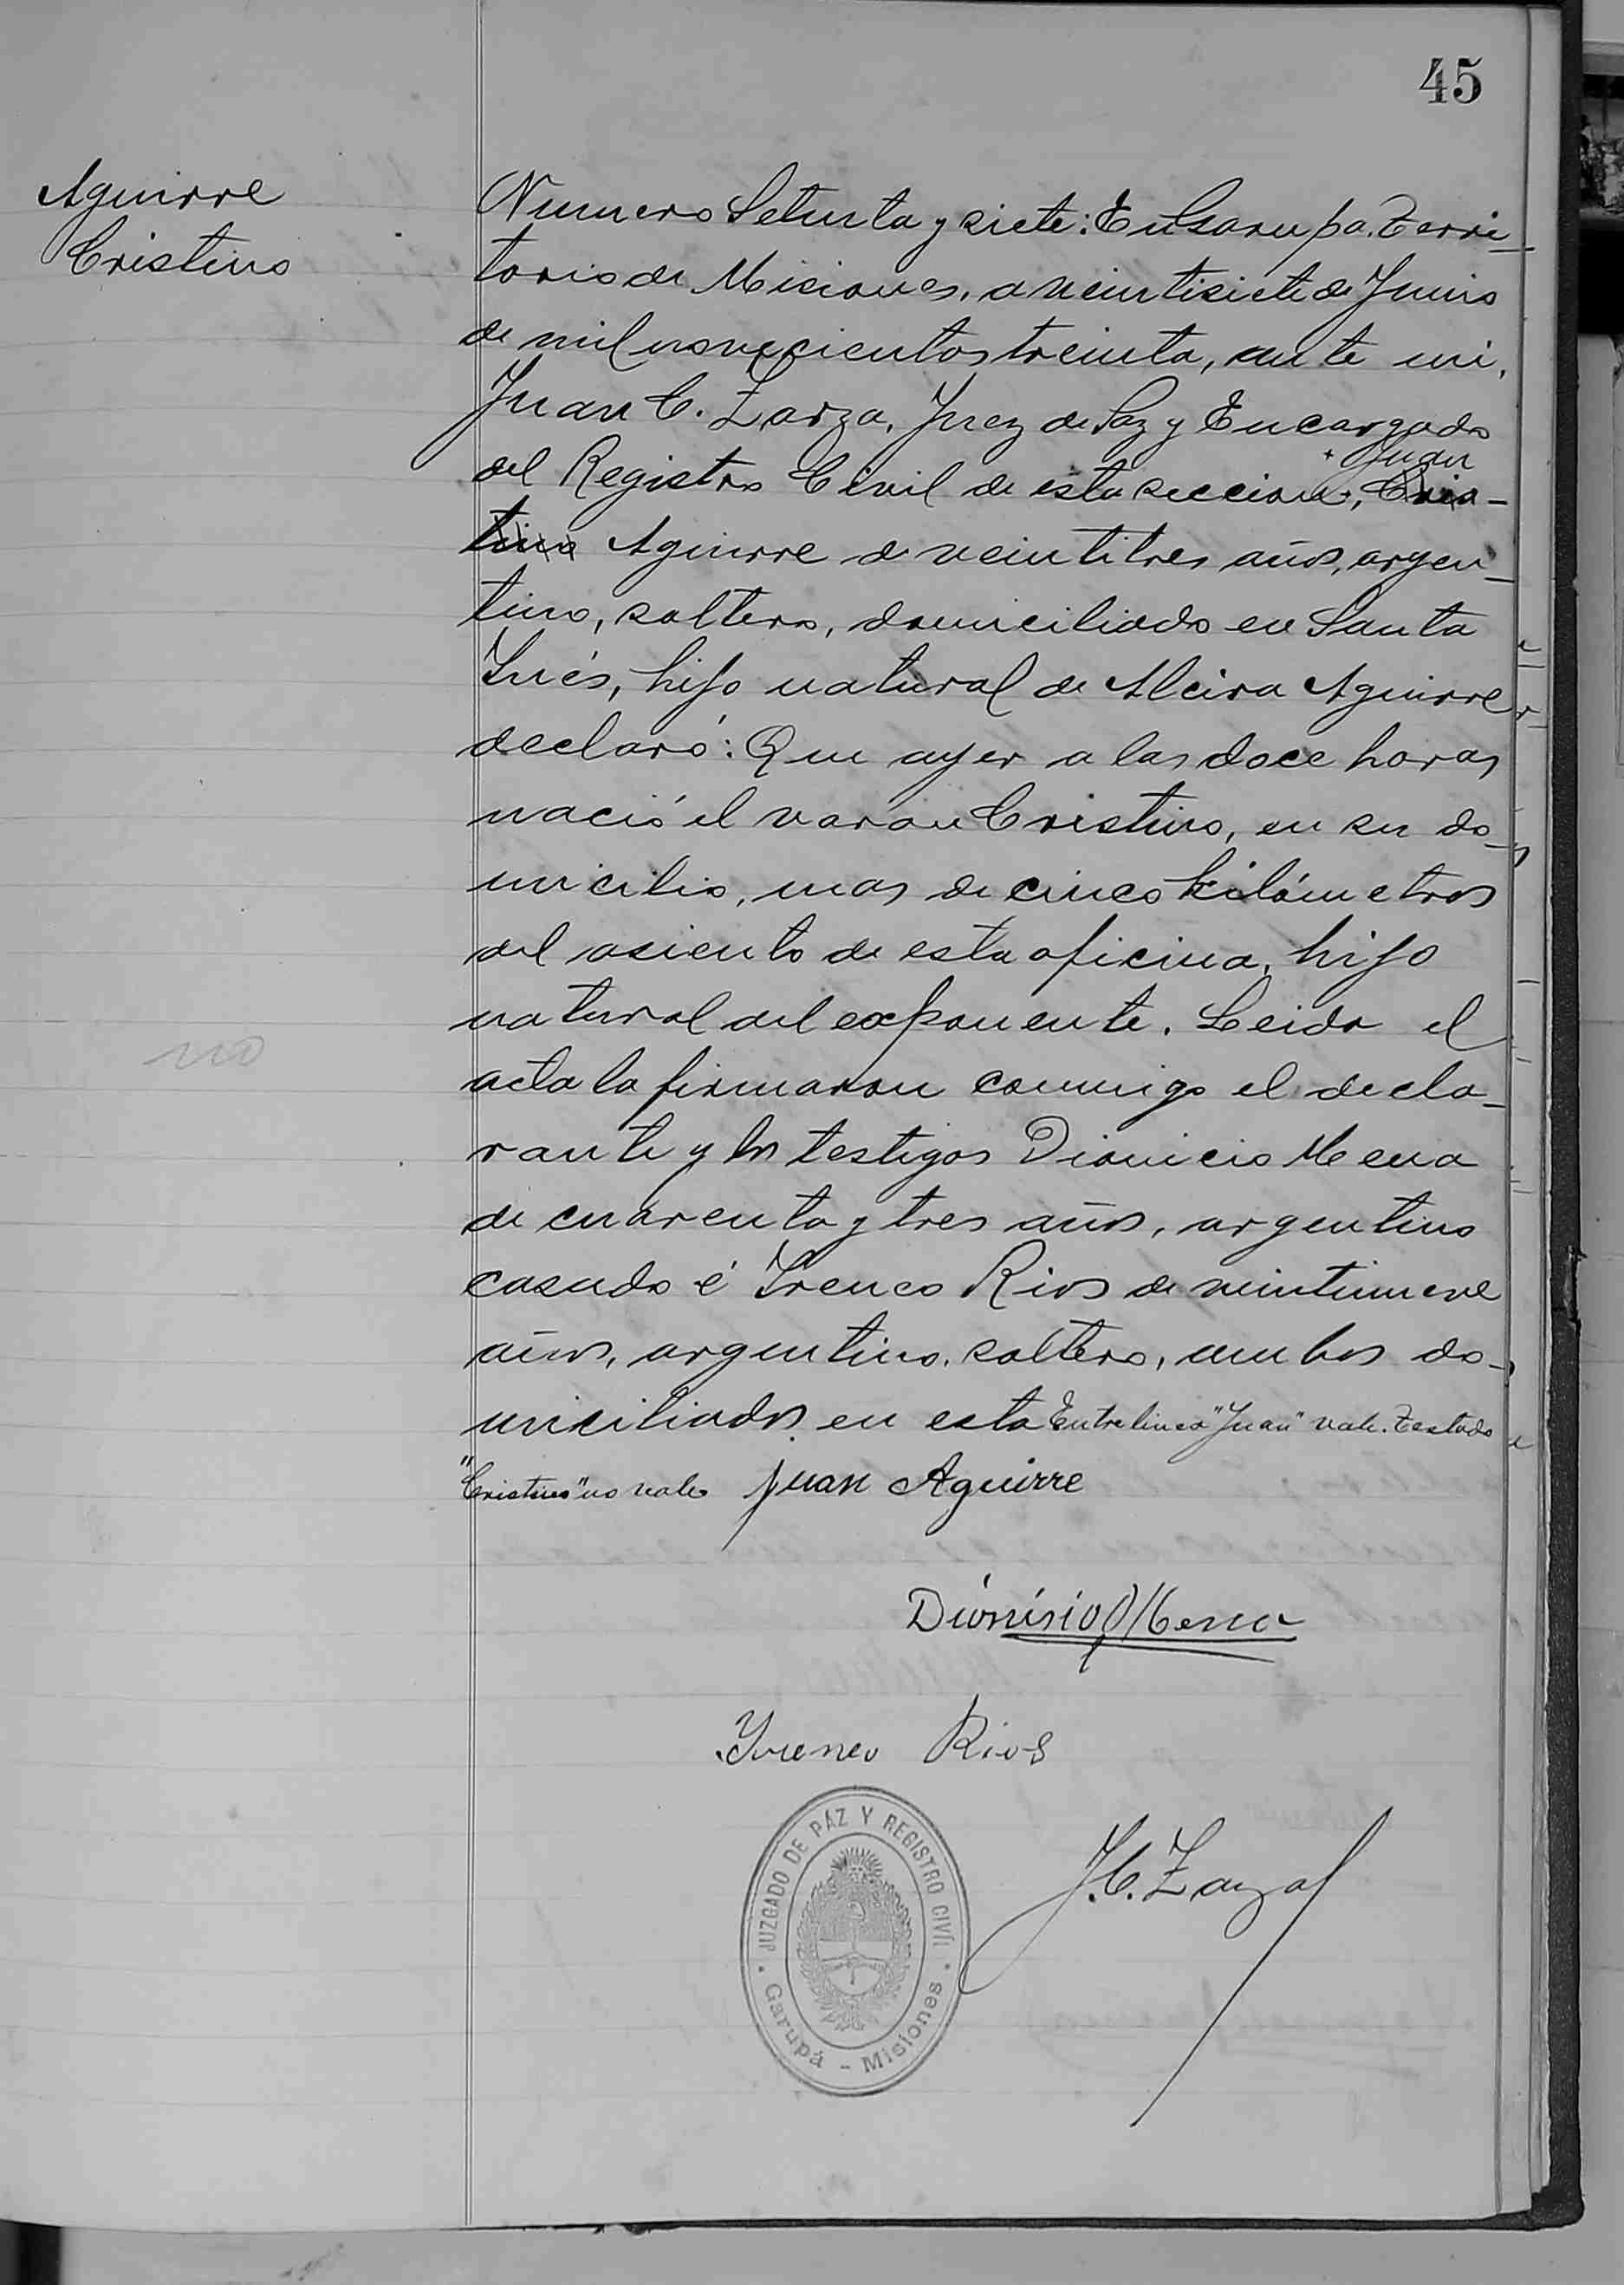 45
Aguirre
Cristino
Numero Setenta y siete: En Garupa, Terri-
torio de Misiones, a veintisiete de Junio
de mil novecientos treinta, ante mi,
Juan C. Zarza, Juez de Paz y Encargado
del Registro Civil de esta seccion, Cris-
Juan
tino Aguirre de veintitres años, argen-
tino, soltero, domiciliado en Santa
Inés, hijo natural de Alcira Aguirre
declaró: Que ayer a las doce horas
nació el varon Cristino, en su do-
micilio, mas de cinco kilómetros
del asiento de esta oficina, hijo
natural del exponente. Leida el
acta la firmaron conmigo el decla-
rante y los testigos Dionicio Mena
de cuarenta y tres años, argentino
casado é Ireneo Rios de veintinueve
años, argentino, soltero, ambos do-
miciliados en esta Entre linea "Juan" vale. Testado
"Cristino" no vale Juan Aguirre
no
Dionisio Mena
Yreneo Rios
J.C. Zarza
JUZGADO DE PAZ Y REGISTRO CIVIL
Garupá - Misiones